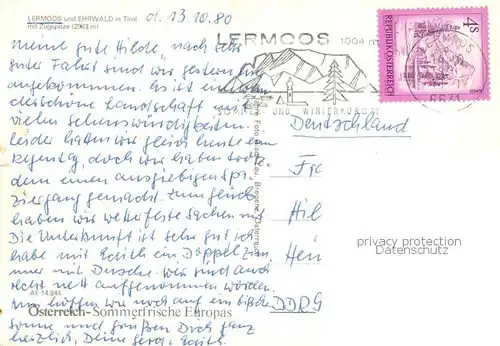 LERMOOS und EHRWALD in Tirol
mit Zugspitze (2963 m)
d. 13.10.80
Meine gute Hilde, nach sehr
guter Fahrt sind wir gestern hier
angekommen. Es ist eine
schöne Landschaft mit
vielen Sehenswürdigkeiten.
Leider hatten wir gleich heute einen
Regentag, doch wir haben trotz
dem einen ausgiebigen Spa
ziergang gemacht. Zum Glück
haben wir wetterfeste Sachen mit
Die Unterkunft ist sehr gut, ich
habe mit Edith ein Doppelzim
mer mit Dusche. Wir sind auch
recht nett aufgenommen worden.
Wir hoffen nur noch auf ein bißchen
Sonne und grüßen Dich ganz
herzlich, Deine Edith.
AF 14.844
Österreich-Sommerfrische Europas
LERMOOS
1004 m
SOMMER- UND WINTERKURORT
REPUBLIK ÖSTERREICH
4 S
6631
Deutschland
Fr
Hil
Hein
DDR
privacy protection
Datenschutz